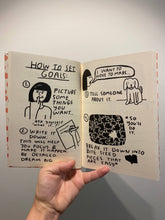 HOW TO SET
GOALS:
①
PICTURE
SOME
THINGS
YOU
WANT.
② WRITE IT
DOWN.
THIS WILL HELP
YOU FOCUS AND
MAKE IT HAPPEN.
BE DETAILED.
DREAM BIG
I WANT TO
LOVE TO MAKE..
③ TELL SOMEONE
ABOUT IT.
④
* SO
YOU'LL
DO IT.
BREAK IT DOWN INTO
BITE SIZED
PIECES THAT
ARE EASY